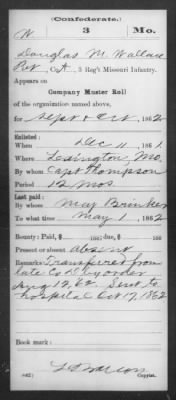 (Confederate.)
W 3 Mo.
Douglas M. Wallace
Pvt, Co. A, 3 Reg't Missouri Infantry.
Appears on
Company Muster Roll
of the organization named above,
for Sept & Oct, 1862
Enlisted:
When Dec 11, 1861
Where Lexington, Mo.
By whom Capt Thompson
Period 12 Mos.
Last paid:
By whom Maj Brinker
To what time May 1, 1862
Bounty: Paid $ 100; due $ 100
Present or absent
Remarks: Transferred from
late Co by order
Aug 12, 62 Sent to
hospital Oct 17, 1862
Book mark:
(642)
Copyist.